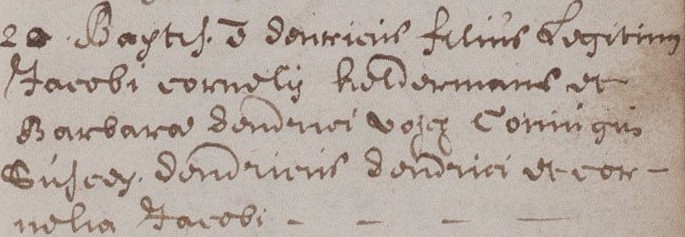 20. Baptis. ē Henricus filius Legitimus
Jacobi cornelij keldermans et
Barbara Hendrici Coniugum
Suscep. Hendricus Hendrici et cor-
nelia Jacobi - - - -